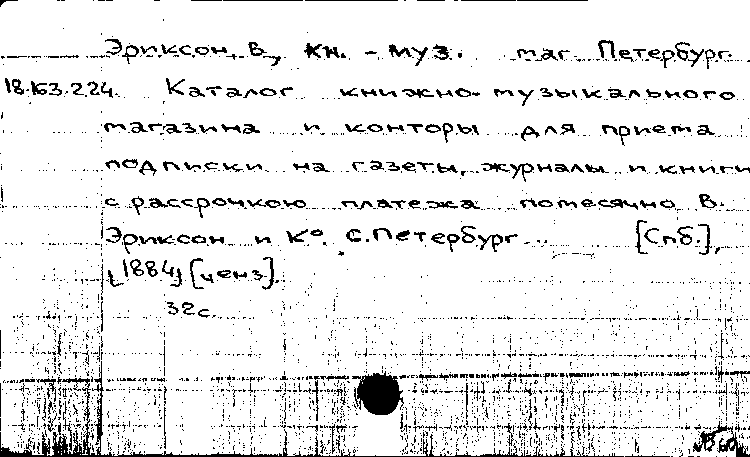 Эриксон, В., кн. - муз. маг. Петербург.
18.163.2.24. Каталог книжно-музыкального
магазина и конторы для приема
подписки на газеты, журналы и книги
с рассрочкою платежа помесячно В.
Эриксон и К°. С.Петербург... [Спб.],
1884 [ценз].
32с.